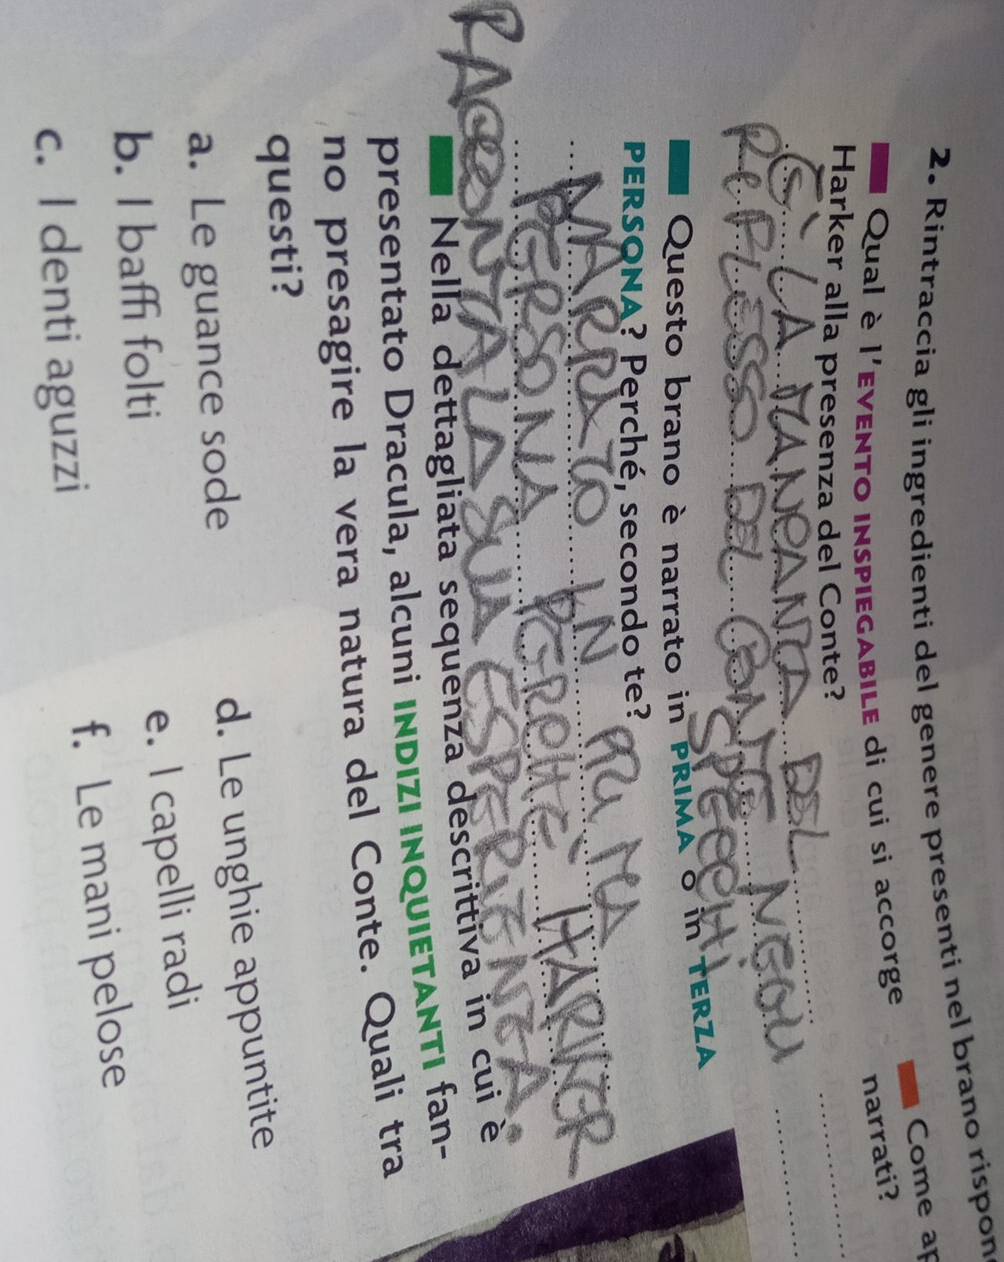 2. Rintraccia gli ingredienti del genere presenti nel brano rispon
Qual è l'EVENTO INSPIEGABILE di cui si accorge
Harker alla presenza del Conte?
È LA MANCANZA DEL
RIFLESSO DEL CONTE NEGLI
SPECCHI
Questo brano è narrato in PRIMA o in TERZA
PERSONA? Perché, secondo te?
NARRATO IN PRIMA
PERSONA PERCHÈ HARKER
RACCONTA LA SUA ESPERIENZA.
Nella dettagliata sequenza descrittiva in cui è
presentato Dracula, alcuni INDIZI INQUIETANTI fan-
no presagire la vera natura del Conte. Quali tra
questi?
a. Le guance sode
b. I baffi folti
c. I denti aguzzi
d. Le unghie appuntite
e. I capelli radi
f. Le mani pelose
Come ap
narrati?